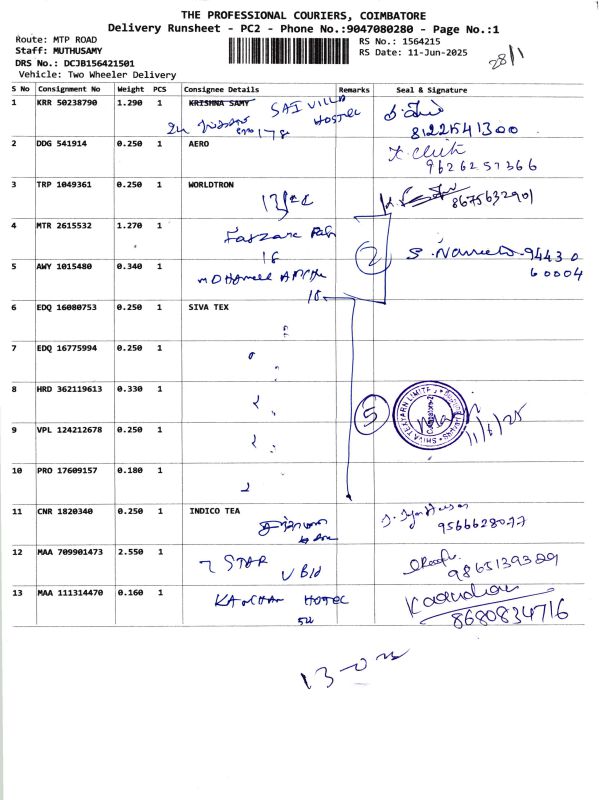 THE PROFESSIONAL COURIERS, COIMBATORE
Delivery Runsheet - PC2 - Phone No.:9047080280 - Page No.:1
Route: MTP ROAD
Staff: MUTHUSAMY
DRS No.: DCJB156421501
Vehicle: Two Wheeler Delivery
RS No.: 1564215
RS Date: 11-Jun-2025
28/1
S No Consignment No Weight PCS Consignee Details Remarks Seal & Signature
1 KRR 50238790 1.290 1 KRISHNA SAMY SAI VILLA
HOSTEL
178
8122541300
2 DDG 541914 0.250 1 AERO
9626257366
3 TRP 1049361 0.250 1 WORLDTRON
8675632901
4 MTR 2615532 1.270 1
18
2
94430
60004
5 AWY 1015480 0.340 1
18
6 EDQ 16080753 0.250 1 SIVA TEX
7 EDQ 16775994 0.250 1
8 HRD 362119613 0.330 1
5
SHIVA TEXYARN LIMITED
11/6/25
9 VPL 124212678 0.250 1
10 PRO 17609157 0.180 1
11 CNR 1820340 0.250 1 INDICO TEA
9566628077
12 MAA 709901473 2.550 1 7 STAR
9865139329
13 MAA 111314470 0.160 1 KANCHAN HOTEL
8680834716